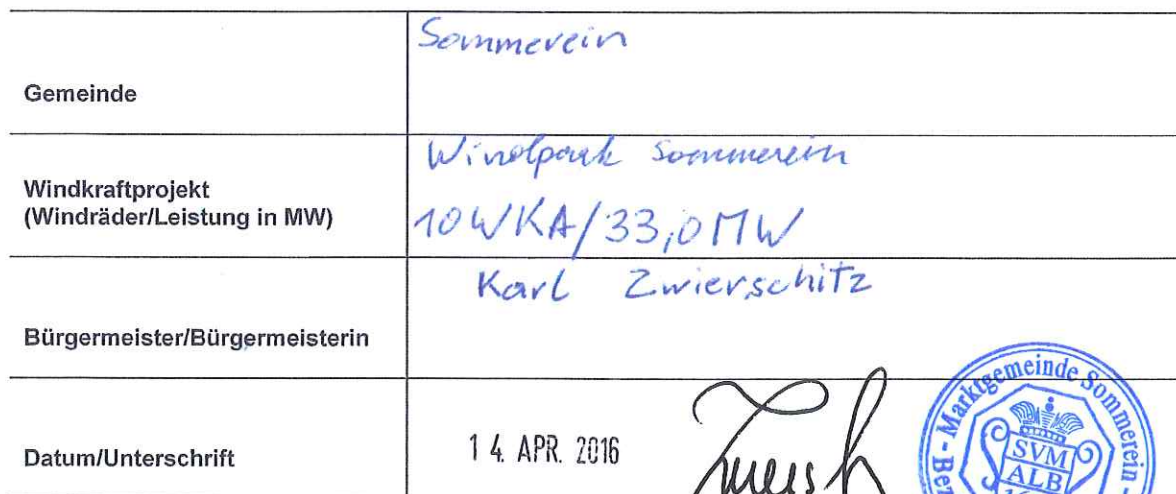 Gemeinde
Sommerein
Windkraftprojekt
(Windräder/Leistung in MW)
Windpark Sommerein
10 WKA/33,0 MW
Bürgermeister/Bürgermeisterin
Karl Zwierschitz
Datum/Unterschrift
14. APR. 2016
Bez - Marktgemeinde Sommerein -
SVM
ALB